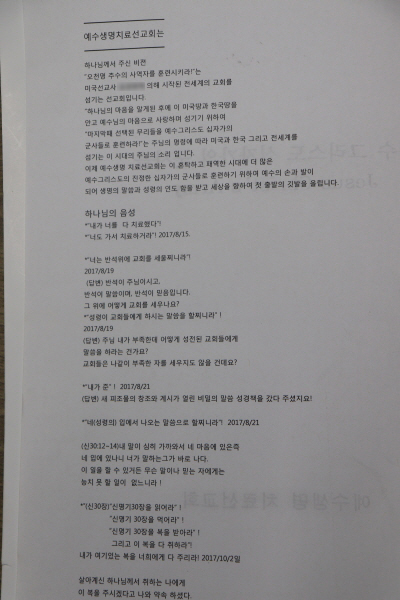 예수생명치료선교회는
하나님께서 주신 비전
"오천명 추수의 사역자를 훈련시키라!"는
미국선교사 의해 시작된 전세계의 교회를
섬기는 선교회입니다.
"하나님의 마음을 알게된 후에 이 미국땅과 한국땅을
안고 예수님의 마음으로 사랑하며 섬기기 위하여
"마지막때 선택된 무리들을 예수그리스도 십자가의
군사들로 훈련하라!"는 주님의 명령에 따라 미국과 한국 그리고 전세계를
섬기는 이 시대의 주님의 소리 입니다.
이제 예수생명선교회는 이 혼탁하고 패역한 시대에 더 많은
예수그리스도의 진정한 십자가의 군사들로 훈련하기 위하여 예수의 손과 발이
되어 생명의 말씀과 성령의 인도 함을 받고 세상을 향하여 첫 출발의 깃발을 올립니다.
하나님의 음성
*"내가 너를 다 치료했다"!
*"너도 가서 치료하거라"! 2017/8/15.
*"너는 반석위에 교회를 세울찌니라"!
2017/8/19
(답변) 반석이 주님이시고,
반석이 말씀이며, 반석이 믿음입니다.
그 위에 어떻게 교회를 세우나요?
*"성령이 교회들에게 하시는 말씀을 할찌니라" !
2017/8/19
(답변) 주님 내가 부족한데 어떻게 성전된 교회들에게
말씀을 하라는 건가요?
교회들은 나같이 부족한 자를 세우지도 않을 건데요?
*"내가 준" ! 2017/8/21
(답변) 새 피조물의 창조와 계시가 열린 비밀의 말씀 성경책을 갔다 주셨지요!
*"네(성령의) 입에서 나오는 말씀으로 할찌니라"! 2017/8/21
(신30:12~14)내 말이 심히 가까와서 네 마음에 있은즉
네 입에 있나니 너가 말하는그가 바로 나다.
이 일을 할 수 있거든 무슨 말이나 믿는 자에게는
능치 못 할 일이 없느니라 !
*"(신30장)"신명기30장을 읽어라" !
"신명기 30장을 먹어라" !
"신명기 30장을 복을 받아라" !
그리고 이 복을 다 취하라"!
내가 여기있는 복을 너희에게 다 주리라! 2017/10/2일
살아계신 하나님께서 취하는 나에게
이 복을 주시겠다고 나와 약속 하셨다.